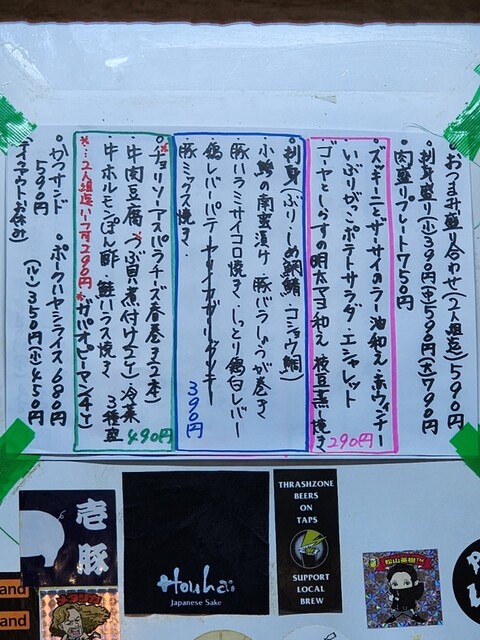 ・おつまみ盛り合わせ(2人組迄)590円
・刺身盛り(小)390円(中)590円(大)790円
・肉盛りプレート750円
ズッキーニとザーサイのラー油和え・赤ウィンナー
いぶりがっこポテトサラダ・エシャレット
ゴーヤとしらすの明太マヨ和え 枝豆黒焼き
290円
・刺身(ぶり・しめ鯛鯖・コショウ鯛)
小鯵の南蛮漬け 豚バラしょうが巻き
豚ハラミサイコロ焼き・しっとり鶏白レバー
鶏レバーパテ
豚ミックス焼き・
390円
・チョリソーアスパラチーズ春巻き(2本)
牛肉豆腐 つぶ貝煮付け(2ケ)冷菜
牛ホルモンぽん酢 鮭ハラス焼き 3種盛
490円
※…2人組迄いつでも290円
※ガパオピーマン(4ケ)
・かつサンド ・ポークハヤシライス680円
590円 (ルー)350円(小)450円
(テイクアウトお休み)
壱
豚
Houhai
Japanese Sake
THRASHZONE
BEERS
ON
TAPS
SUPPORT
LOCAL
BREW
松山
and
and